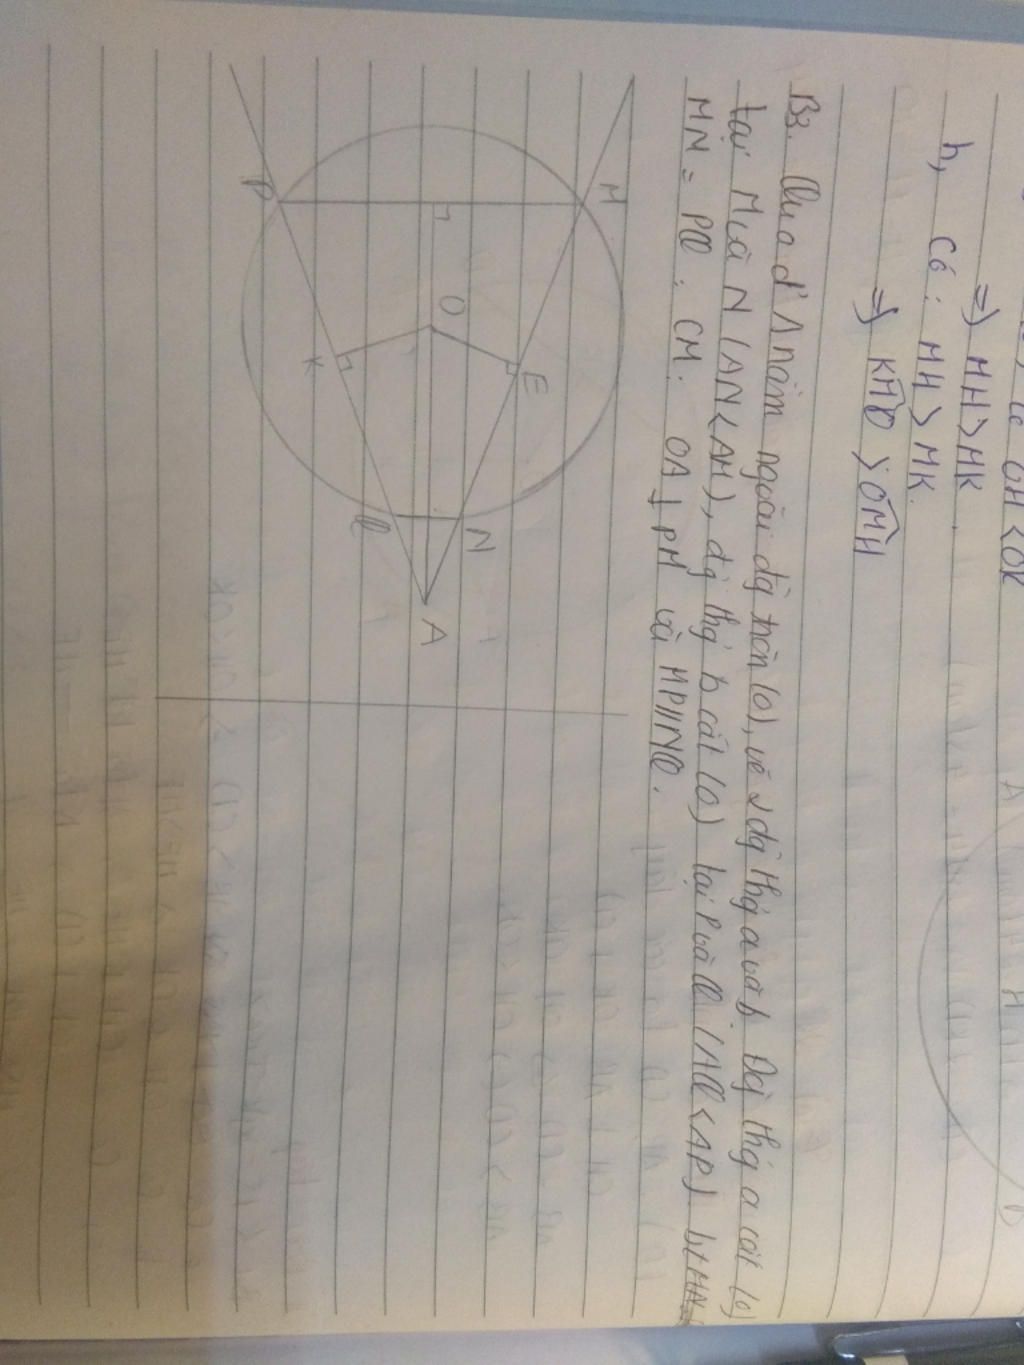 ⇒ MH > MK
b, Có : MH > MK.
⇒ KMO > OMH
B3. Qua đ' A nằm ngoài đg tròn (O), vẽ 2 đg thg a và b. Đg thg a cắt (O)
tại M và N (AN < AM), đg thg b cắt (O) tại P và Q (AQ < AP). bt
MN = PQ. CM: OA ⊥ PM và MP//NQ.
M
P
O
E
K
N
Q
A